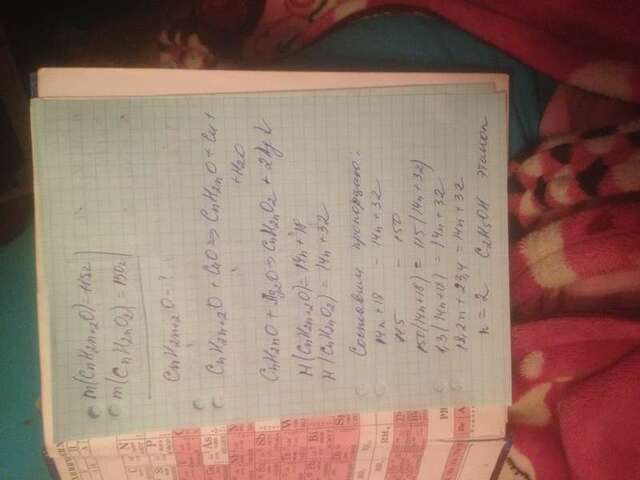 m(CnH2n+2O)=115г
m(CnH2nO2)=150г
CnH2n+2O-?
CnH2n+2O + CuO => CnH2nO + Cu +
+H2O
CnH2nO + Ag2O => CnH2nO2 + 2Ag↓
M(CnH2n+2O)= 14n+18
M(CnH2nO2) = 14n+32
Составим пропорцию:
14n+18 - 14n+32
115 - 150
150(14n+18) = 115(14n+32)
1,3(14n+18) = 14n+32
18,2n+23,4 = 14n+32
n = 2 C2H5OH этанол
C
N
P
As
Sb
Bi
RH4